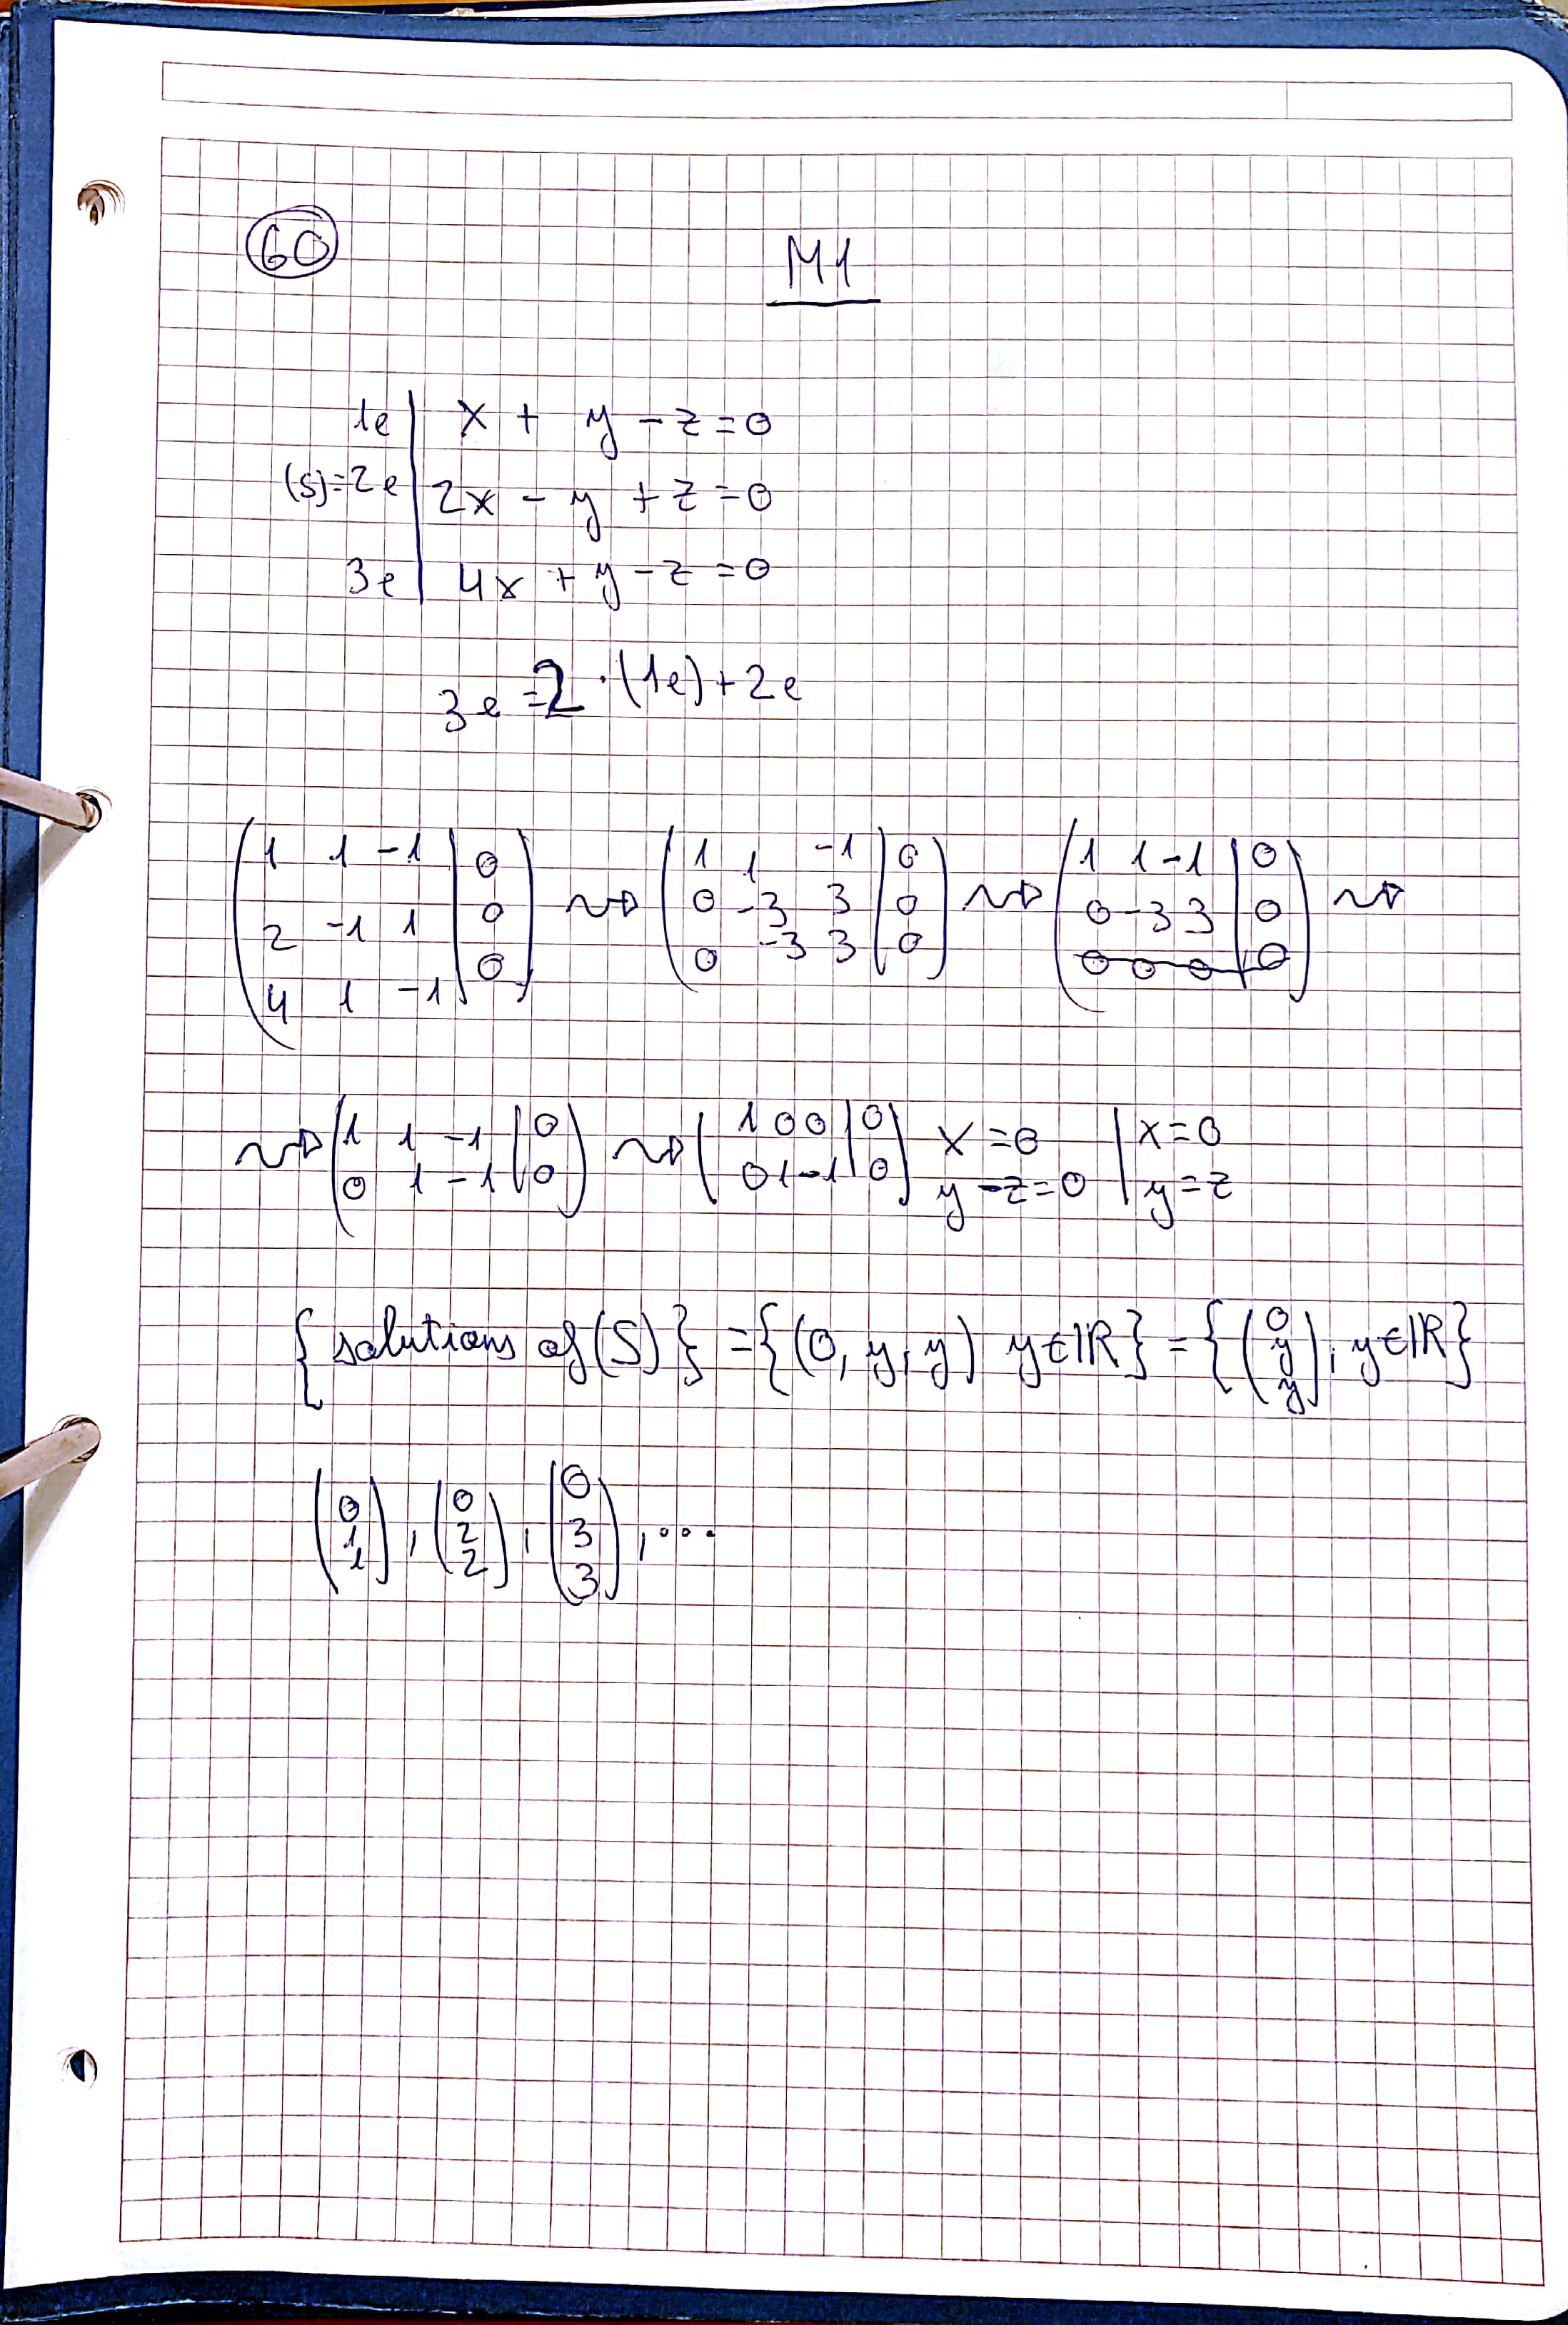 60
M1
1e | x + y - z = 0
(S)=2e | 2x - y + z = 0
3e | 4x + y - z = 0
3e = 2 · (1e) + 2e
( 1 1 -1 | 0 ) ⇝ ( 1 1 -1 | 0 ) ⇝ ( 1 1 -1 | 0 ) ⇝
( 2 -1 1 | 0 ) ( 0 -3 3 | 0 ) ( 0 -3 3 | 0 )
( 4 1 -1 | 0 ) ( 0 -3 3 | 0 ) ( 0 0 0 | 0 )
⇝ ( 1 1 -1 | 0 ) ⇝ ( 1 0 0 | 0 ) x = 0 | x = 0
( 0 1 -1 | 0 ) ( 0 1 -1 | 0 ) y - z = 0 | y = z
{ solutions of (S) } = { (0, y, y) y ∈ ℝ } = { (0 y y), y ∈ ℝ }
(0 1 1), (0 2 2), (0 3 3), ...